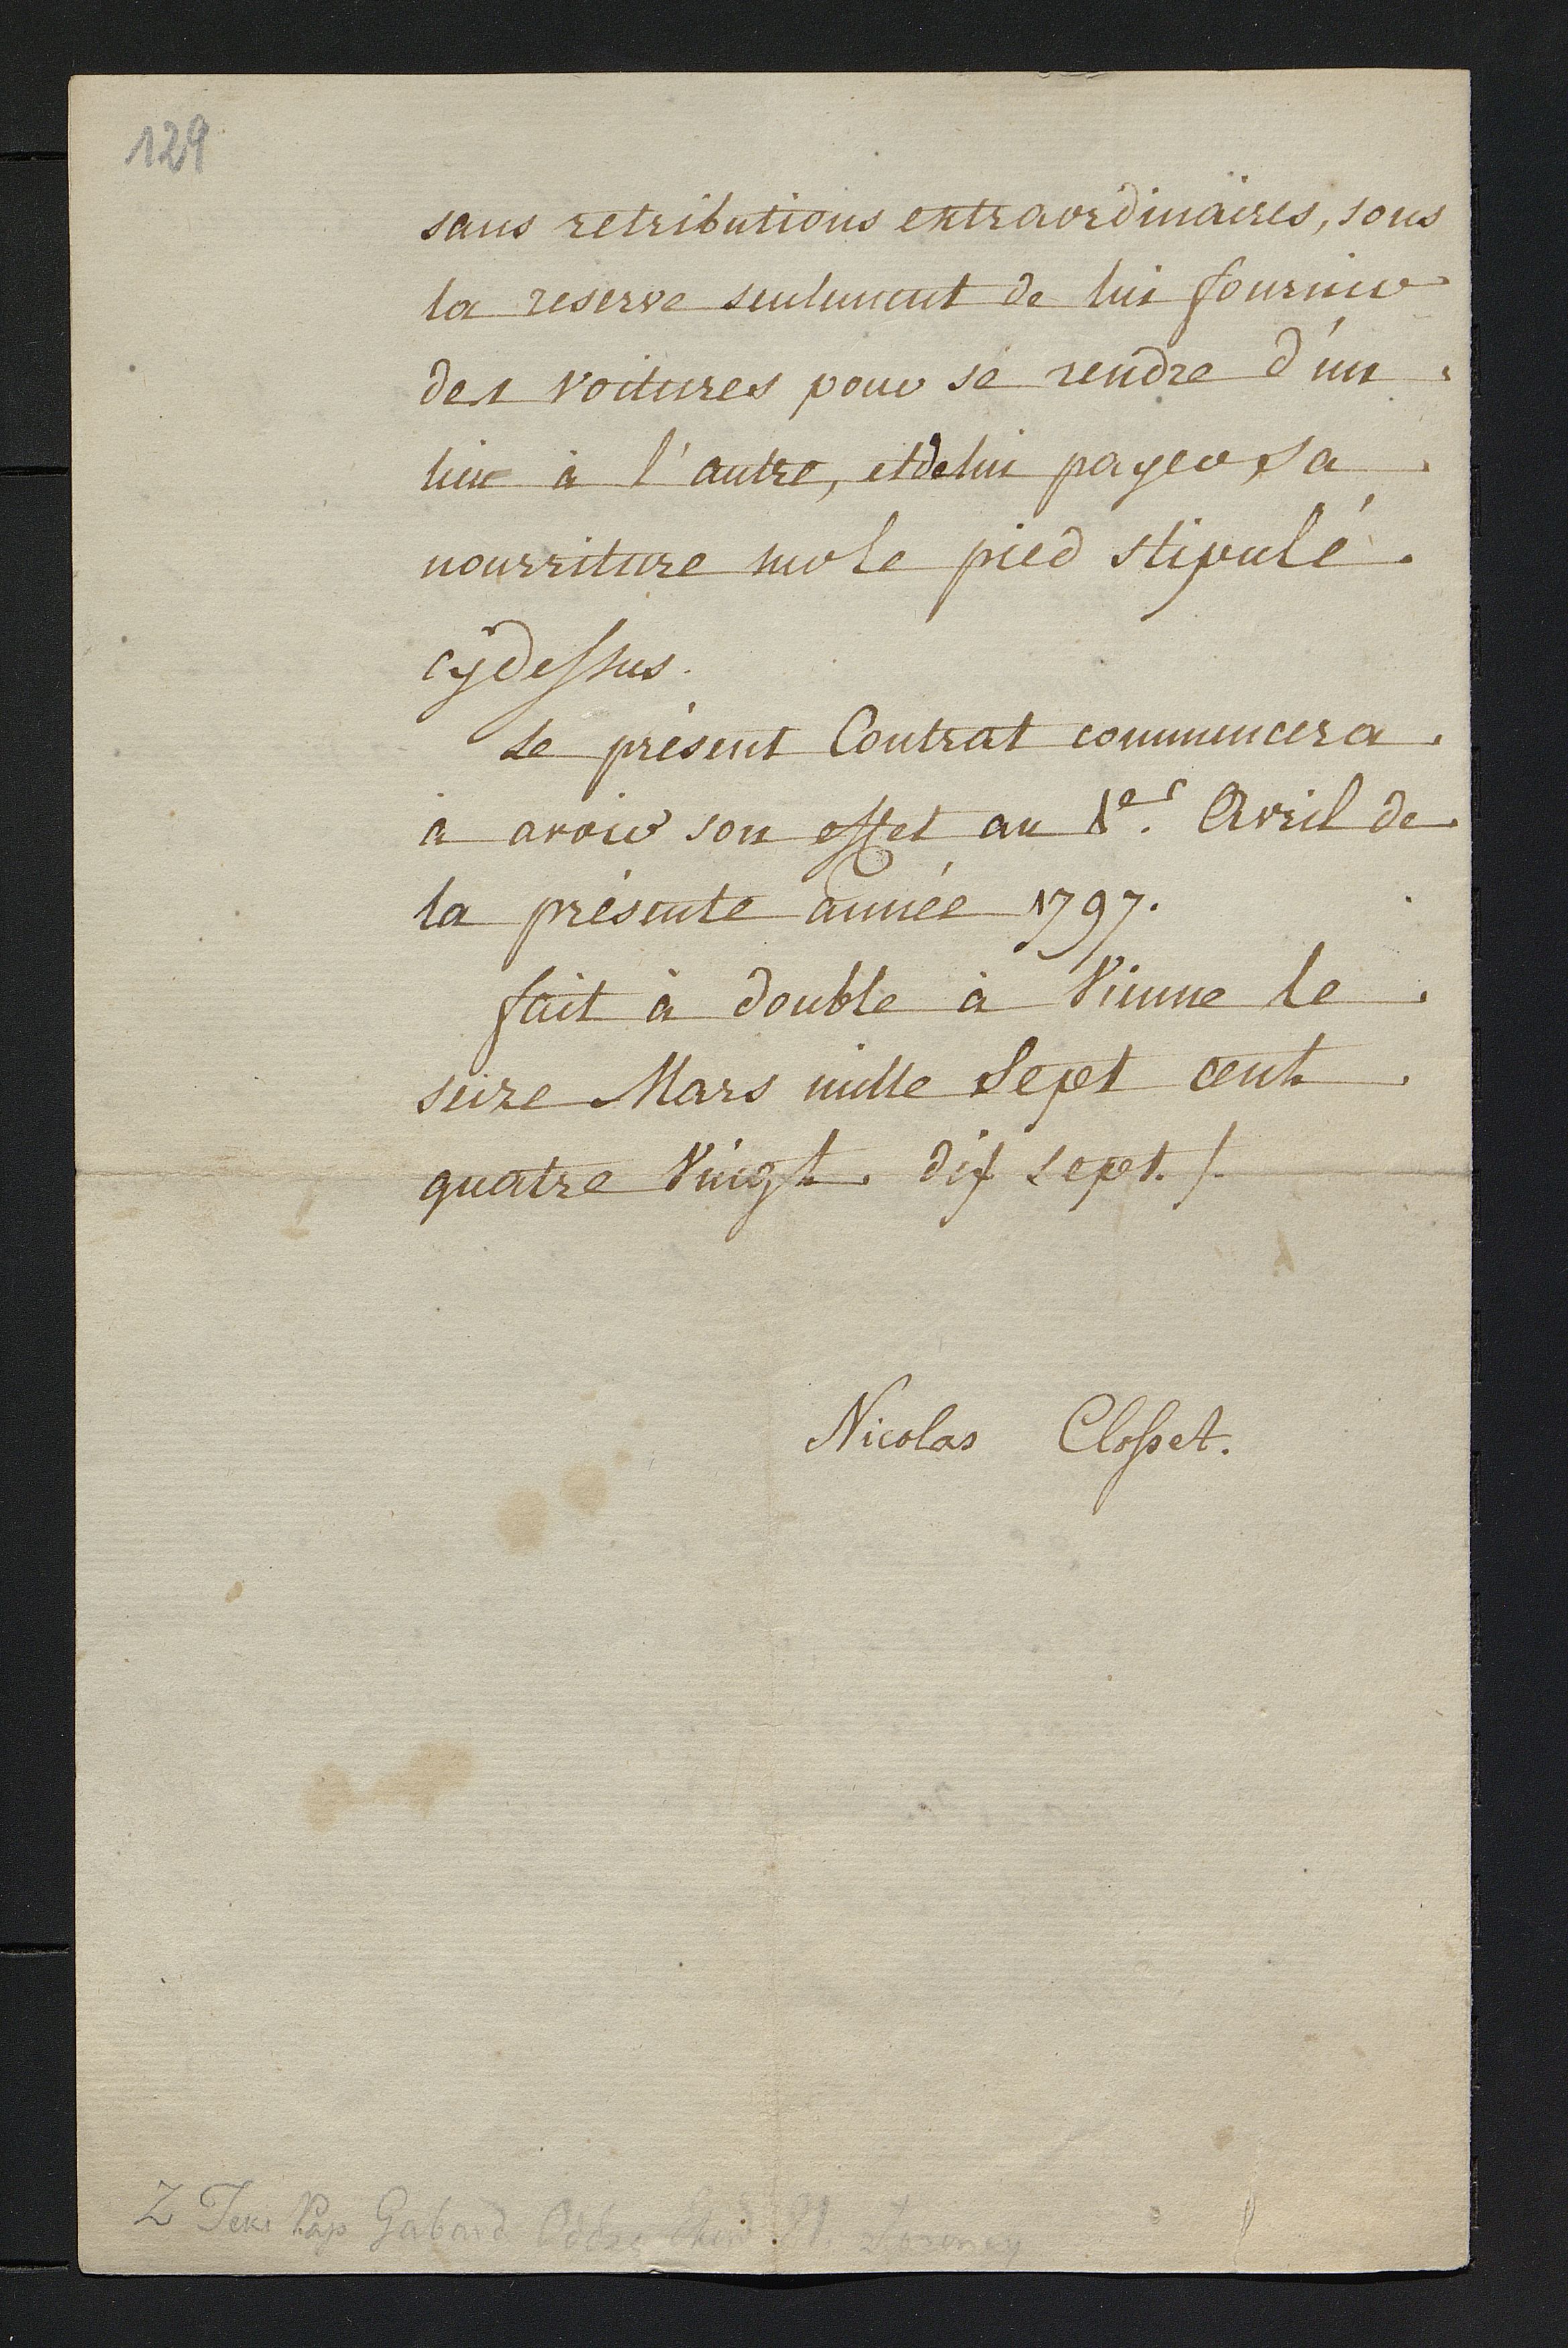 129
sans retributions extraordinäires, sous
la reserve seulement de lui fournir
des voitures pour se rendre d'un
lieu à l'autre, et de lui payer sa
nourriture sur le pied stipulé
cÿdessus.
Le présent Contrat commencera
à avoir son effet au 1er. Avril de
la présente année 1797.
fait à double à Vienne le
seize Mars mille Sept cent
quatre Vingt dix sept./.
Nicolas Closset.
Z Tek Pap Gabard